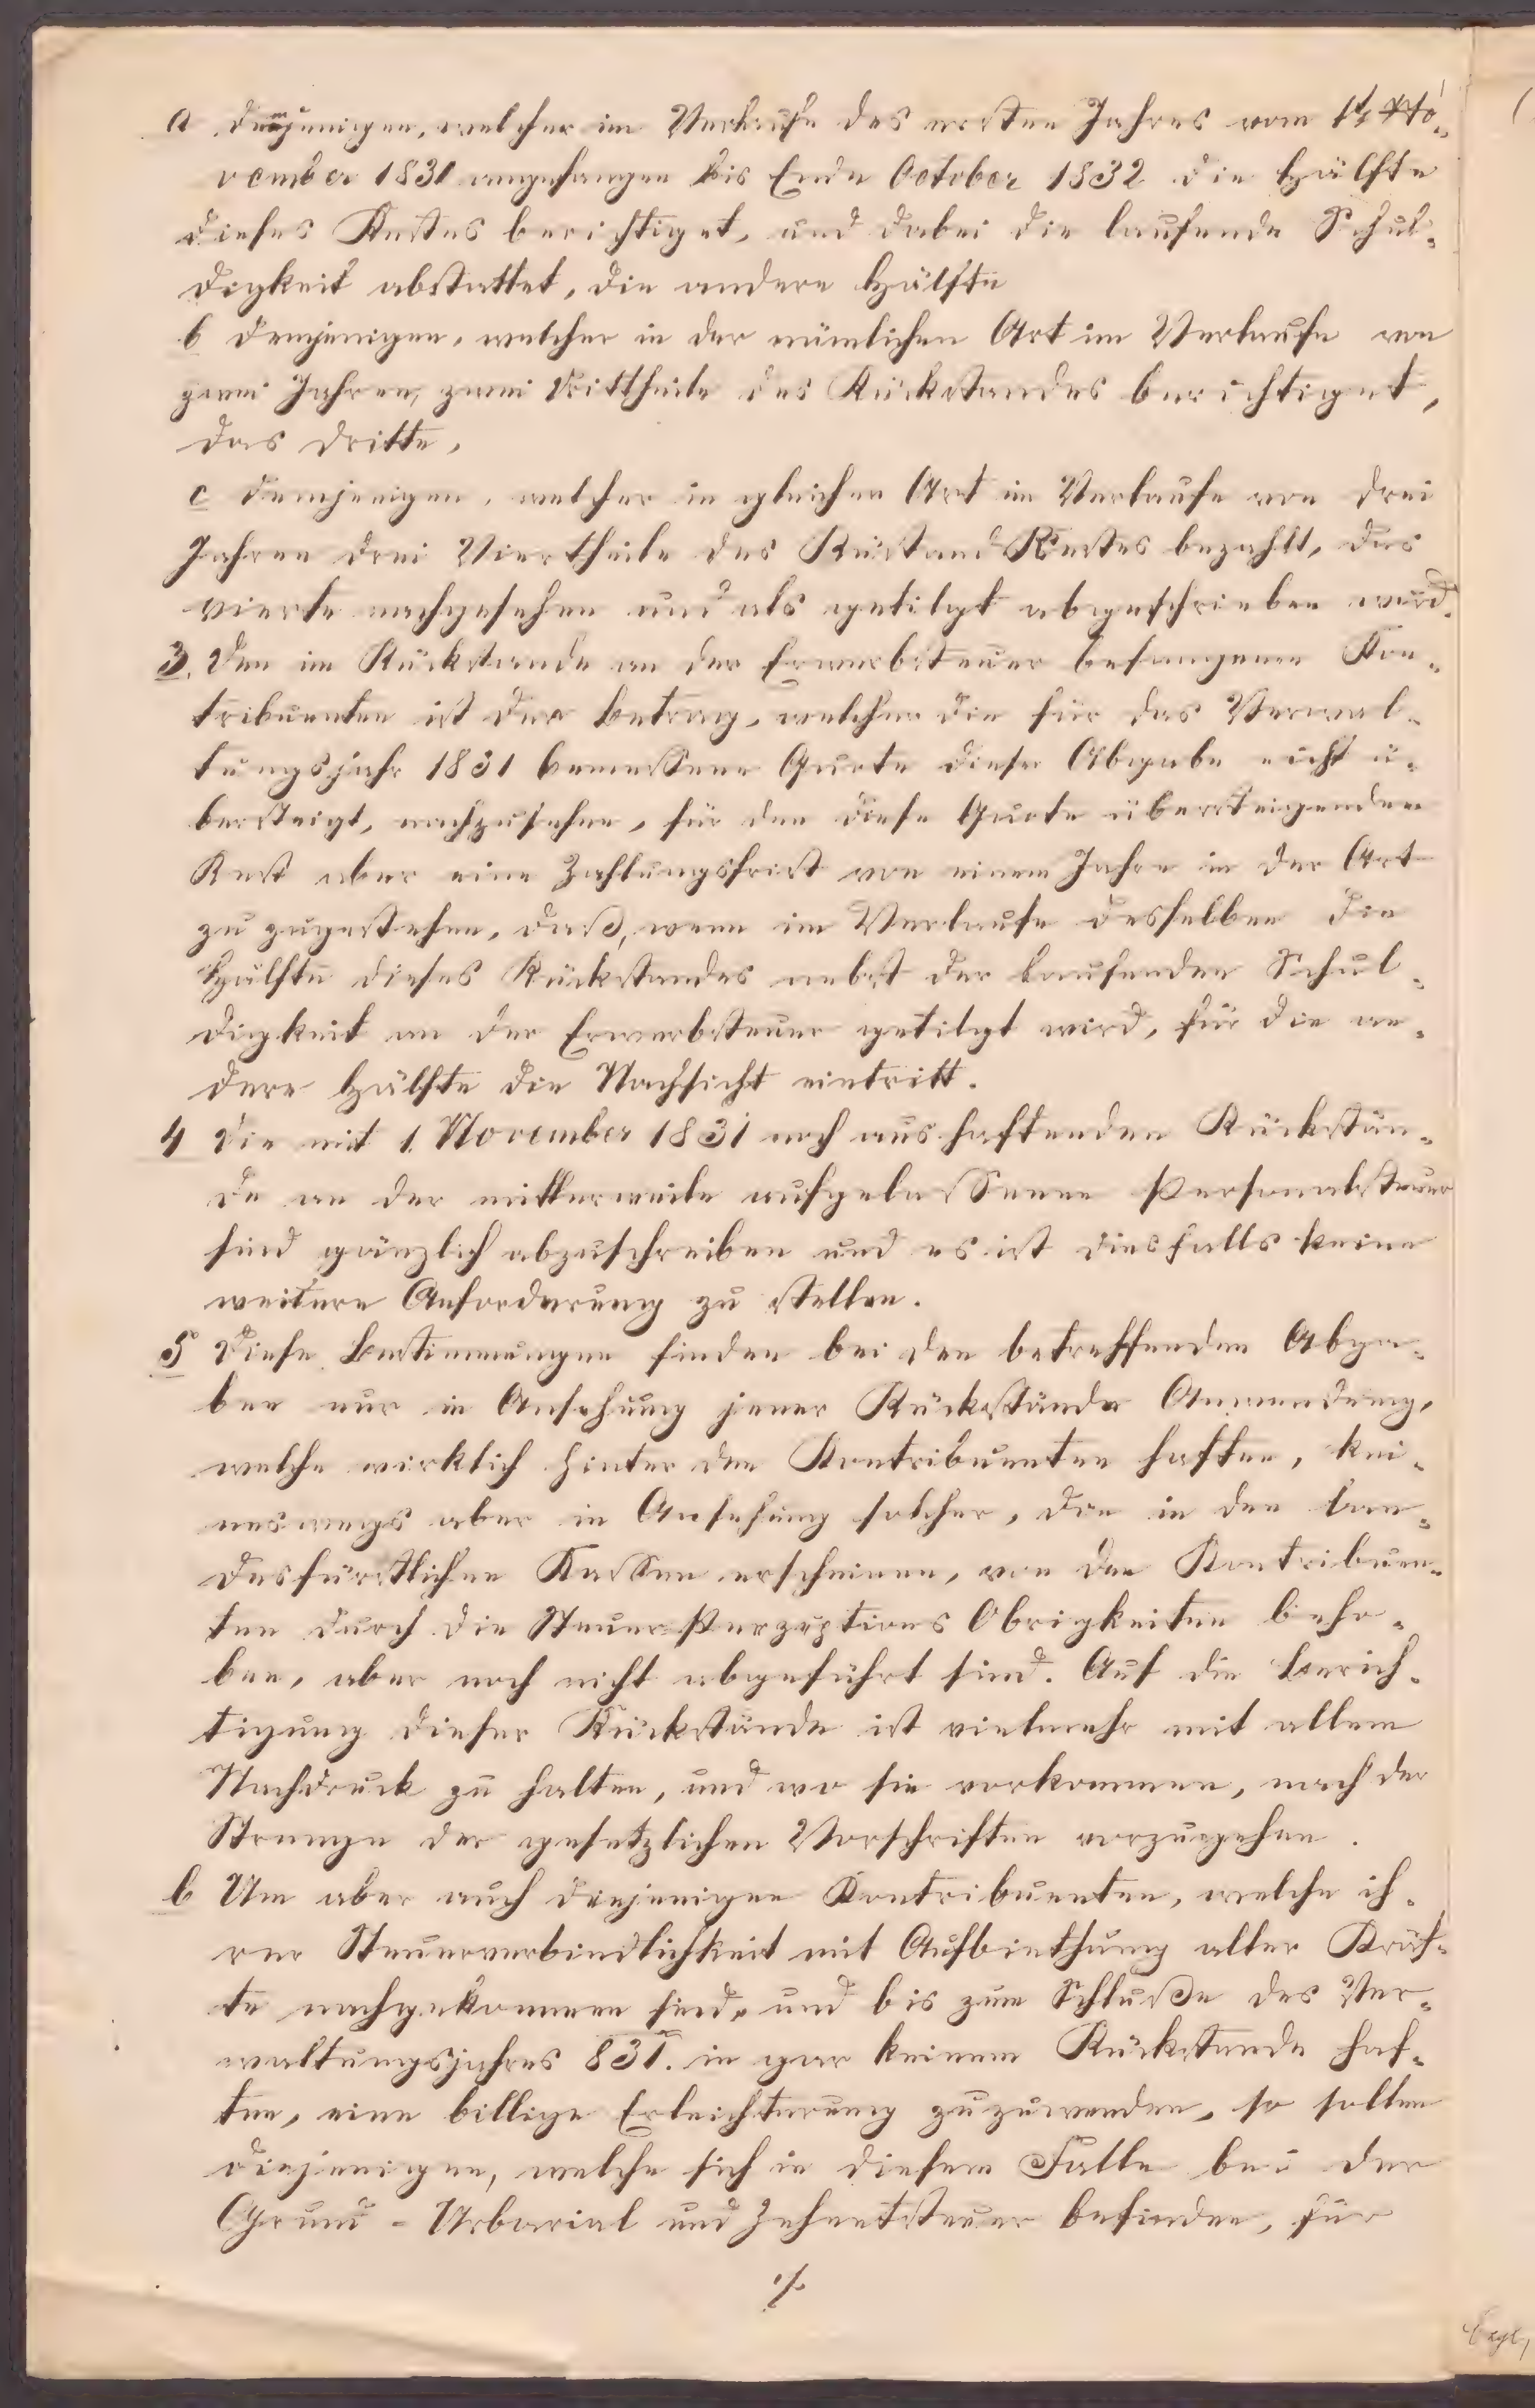 a demjenigen, welcher im Verlaufe des ersten Jahres vom 1t No-
vember 1831 angefangen bis Ende October 1832 die Hälfte
dieses Restes berichtiget, und dabei die laufende Schul-
digkeit abstattet, die andere Hälfte
b demjenigen, welcher in der nämlichen Art im Verlaufe von
zwei Jahren, zwei Drittheile des Rückstandes berichtiget,
das dritte,
c demjenigen, welcher in gleicher Art im Verlaufe von drei
Jahren drei Viertheile des Rückstand Restes bezahlt, das
vierte nachgesehen und als getilgt abgeschrieben wird.
3. Den im Rückstande an der Erwerbsteuer befangenen Kon-
tribuenten ist der Betrag, welcher die für das Verwal-
tungsjahr 1831 bemessene Quote dieser Abgabe nicht ü-
bersteigt, nachzusehen, für den diese Quote übersteigenden
Rest aber eine Zahlungsfrist von einem Jahre in der Art
zu zugestehen, daß, wenn im Verlaufe desselben die
Hälfte dieses Rückstandes nebst der laufenden Schul-
digkeit an der Erwerbsteuer getilgt wird, für die an-
dere Hälfte die Nachsicht eintritt.
4 Die mit 1. November 1831 noch aushaftenden Rückstän-
de an der mittlerweile aufgelassenen Personalsteuer
sind gänzlich abzuschreiben und es ist diesfalls keine
weitere Anforderung zu stellen.
5 Diese Bestimmungen finden bei den betreffenden Abga-
ben nur in Ansehung jener Rückstände Anwendung,
welche wirklich hinter den Kontribuenten haften, kei-
neswegs aber in Ansehung solcher, die in den lan-
desfürstlichen Kassen erscheinen, von den Kontribuen-
ten durch die Steuer Perzeptions Obrigkeiten beho-
ben, aber noch nicht abgeführt sind. Auf die Berich-
tigung dieser Rückstände ist vielmehr mit allem
Nachdruck zu halten, und wo sie vorkommen, nach der
Strenge der gesetzlichen Vorschriften vorzugehen.
6 Um aber auch denjenigen Kontribuenten, welche ih-
rer Steuerverbindlichkeit mit Aufbiethung aller Kräf-
te nachgekommen sind, und bis zum Schluße des Ver-
waltungsjahres 831. in gar keinem Rückstande haf-
ten, eine billige Erleichterung zuzuwenden, so sollen
diejenigen, welche sich in diesem Falle bei der
Grund - Urbarial und Zehentsteuer befinden, für
./.